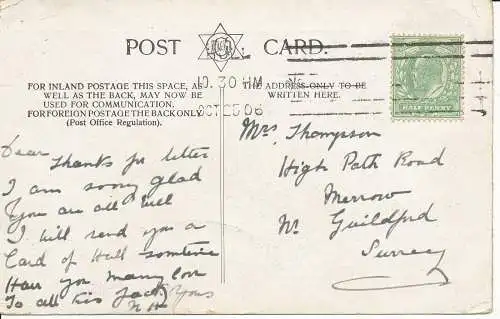 POST CARD.
10.30 AM
OCT 25 06
FOR INLAND POSTAGE THIS SPACE, AS
WELL AS THE BACK, MAY NOW BE
USED FOR COMMUNICATION.
FOR FOREIGN POSTAGE THE BACK ONLY
(Post Office Regulation).
THE ADDRESS ONLY TO BE
WRITTEN HERE.
HALF PENNY
Dear
Thanks for letter
I am sorry glad
You are all well
I will send you a
Card of Hull sometime
Have you many
To all
Yours
Mrs Thompson
High Path Road
Merrow
Nr Guildford
Surrey